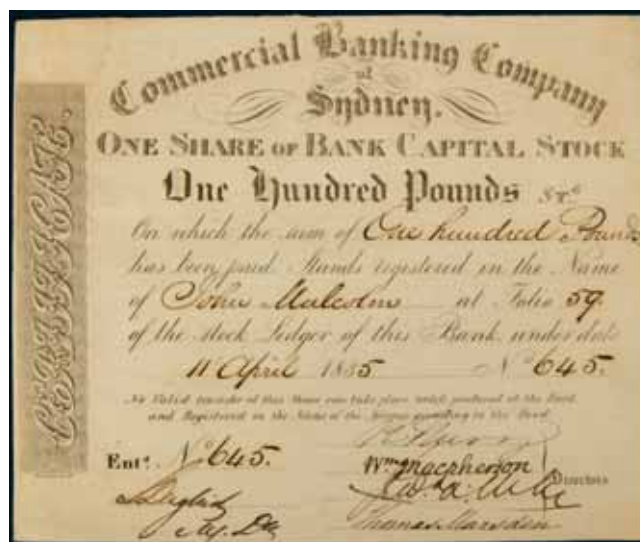 Commercial Banking Company
of
Sydney.
ONE SHARE OF BANK CAPITAL STOCK
One Hundred Pounds St.g
On which the sum of One hundred Pounds
has been paid Stands registered in the Name
of John Malcolm at Folio 59.
of the Stock Ledger of this Bank under date
11 April 1835 No 645.
No Valid transfer of this Share can take place unless produced at the Bank
and Registered in the Name of the
Entd. No 645.
Wm Macpherson
Directors
Thomas Marsden